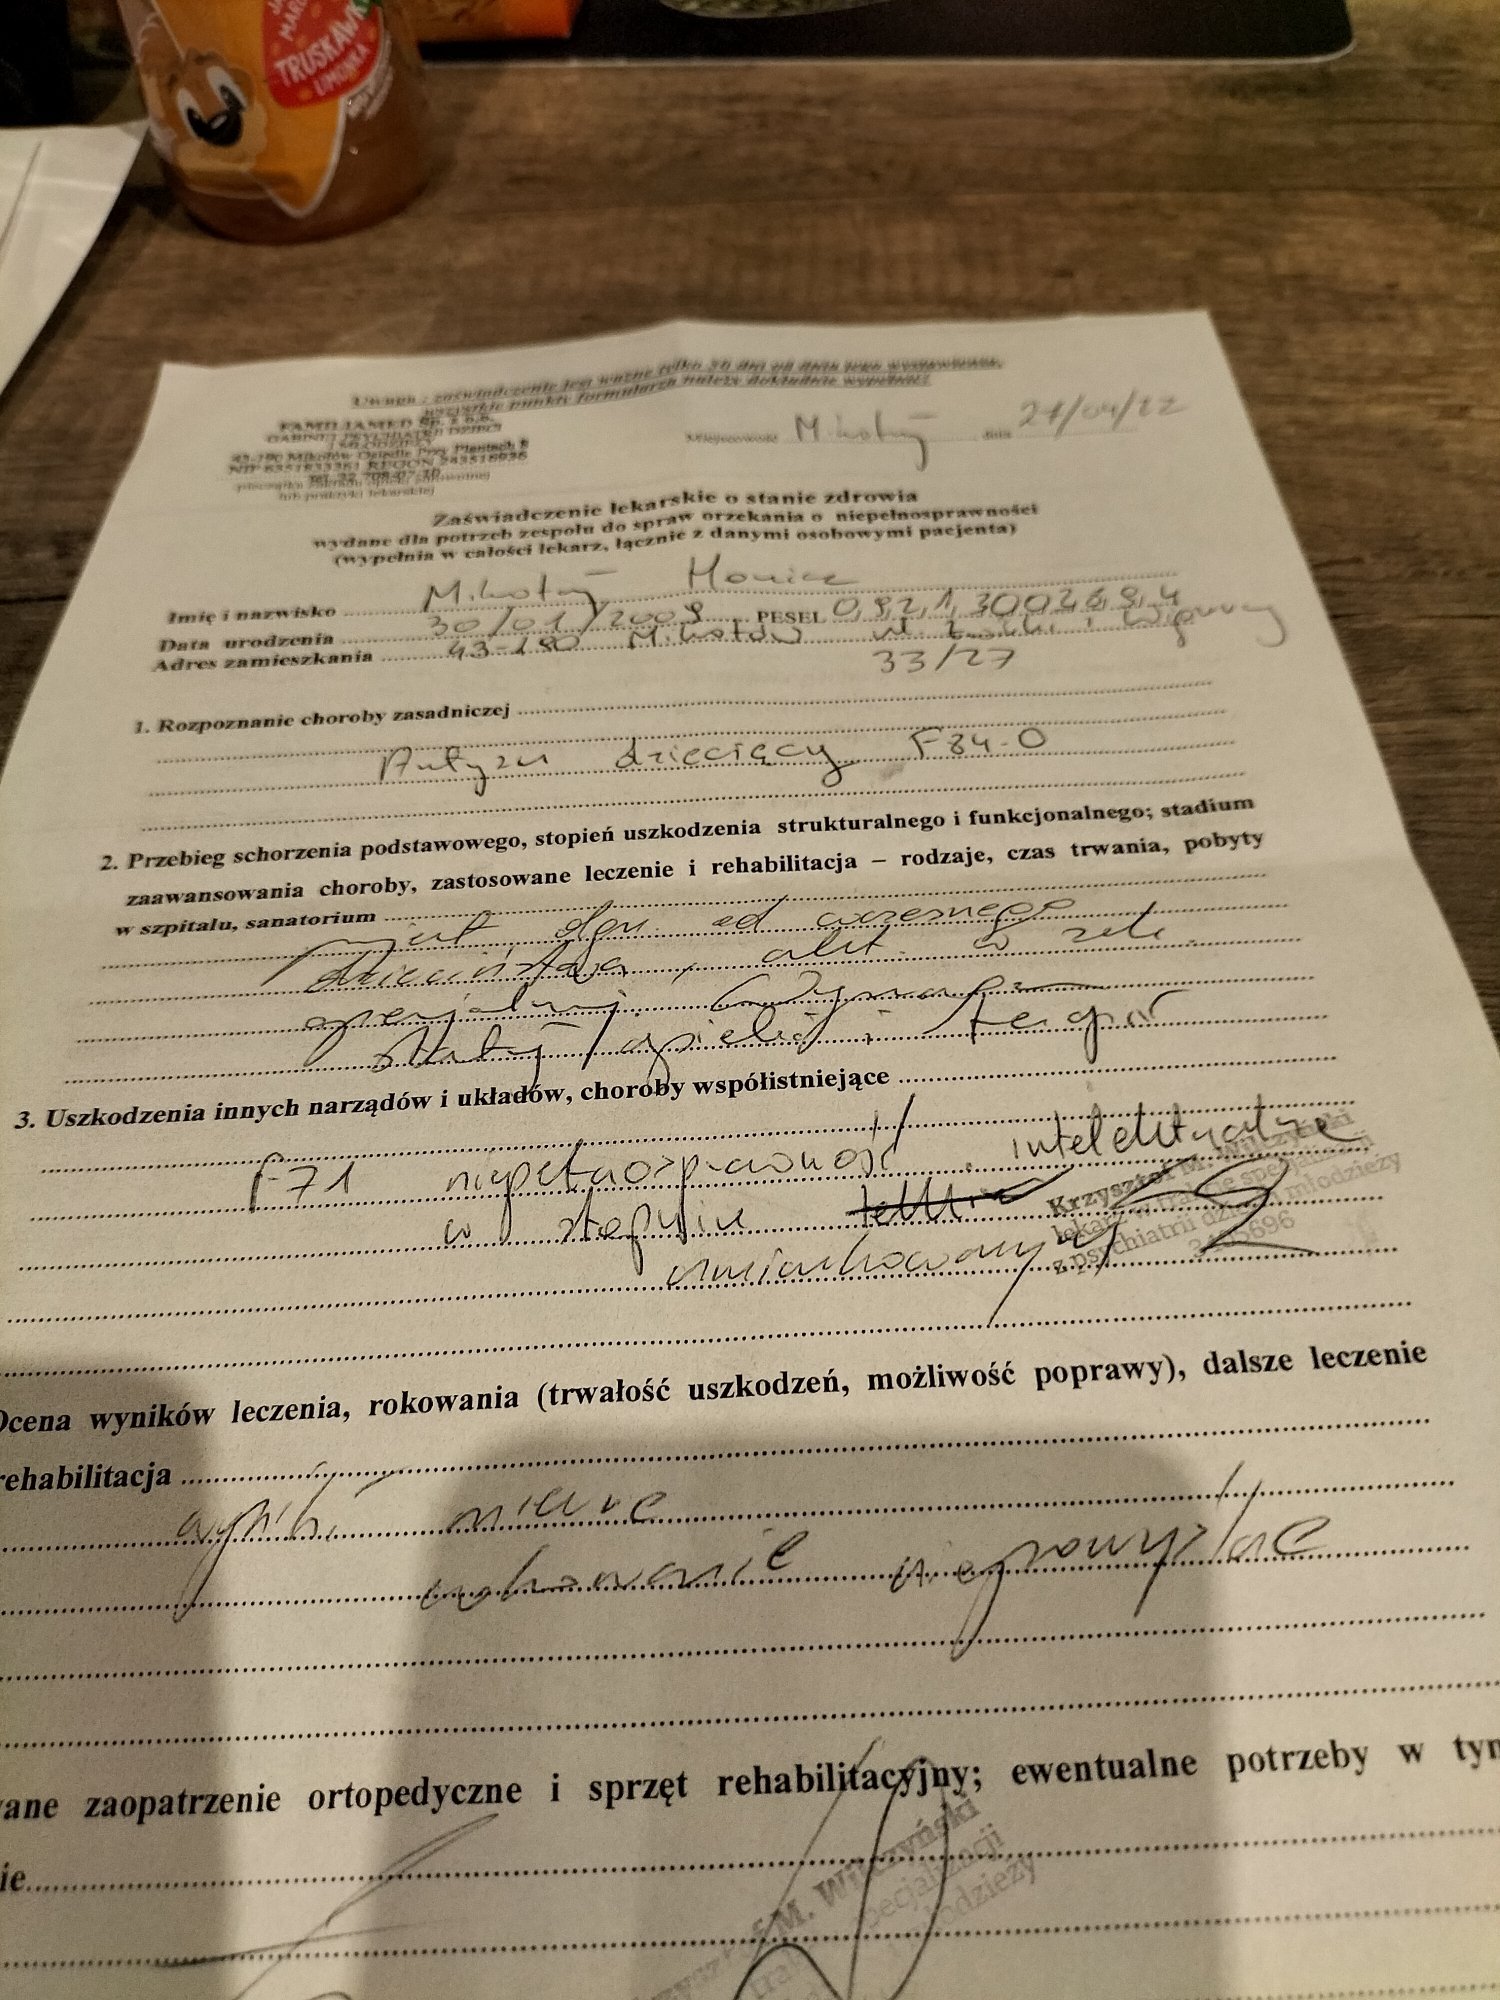 TRUSKAWKA
Uwaga : zaświadczenie jest ważne tylko 30 dni od daty jego wystawienia,
wszystkie punkty formularza należy dokładnie wypełnić
FAMILIAMED Sp. z o.o.
GABINET PSYCHIATRII DZIECI
I MŁODZIEŻY
43-190 Mikołów Osiedle Przy Plantach
NIP 6351833361 REGON 243516036
pieczątka zakładu opieki zdrowotnej
lub praktyki lekarskiej
Miejscowość data 21/04/22
Zaświadczenie lekarskie o stanie zdrowia
wydane dla potrzeb zespołu do spraw orzekania o niepełnosprawności
(wypełnia w całości lekarz, łącznie z danymi osobowymi pacjenta)
Imię i nazwisko Mikołaj
Data urodzenia 30/01/2009 PESEL
Adres zamieszkania 43-190 Mikołów ul. Żwirki i Wigury
33/27
1. Rozpoznanie choroby zasadniczej
Autyzm dziecięcy F84.0
2. Przebieg schorzenia podstawowego, stopień uszkodzenia strukturalnego i funkcjonalnego; stadium
zaawansowania choroby, zastosowane leczenie i rehabilitacja – rodzaje, czas trwania, pobyty
w szpitalu, sanatorium
od wczesnego
dzieciństwa, w
specjalnej. Wymaga
stałej opieki i terapii
3. Uszkodzenia innych narządów i układów, choroby współistniejące
F-71 niepełnosprawność intelektualna
w stopniu
umiarkowanym
Krzysztof M. Wilczyński
lekarz w trakcie specjalizacji
z psychiatrii dzieci i młodzieży
Ocena wyników leczenia, rokowania (trwałość uszkodzeń, możliwość poprawy), dalsze leczenie
rehabilitacja
wyniki mierne
rokowanie niepomyślne
wane zaopatrzenie ortopedyczne i sprzęt rehabilitacyjny; ewentualne potrzeby w tym
ie
M. Wilczyński
specjalizacji
młodzieży